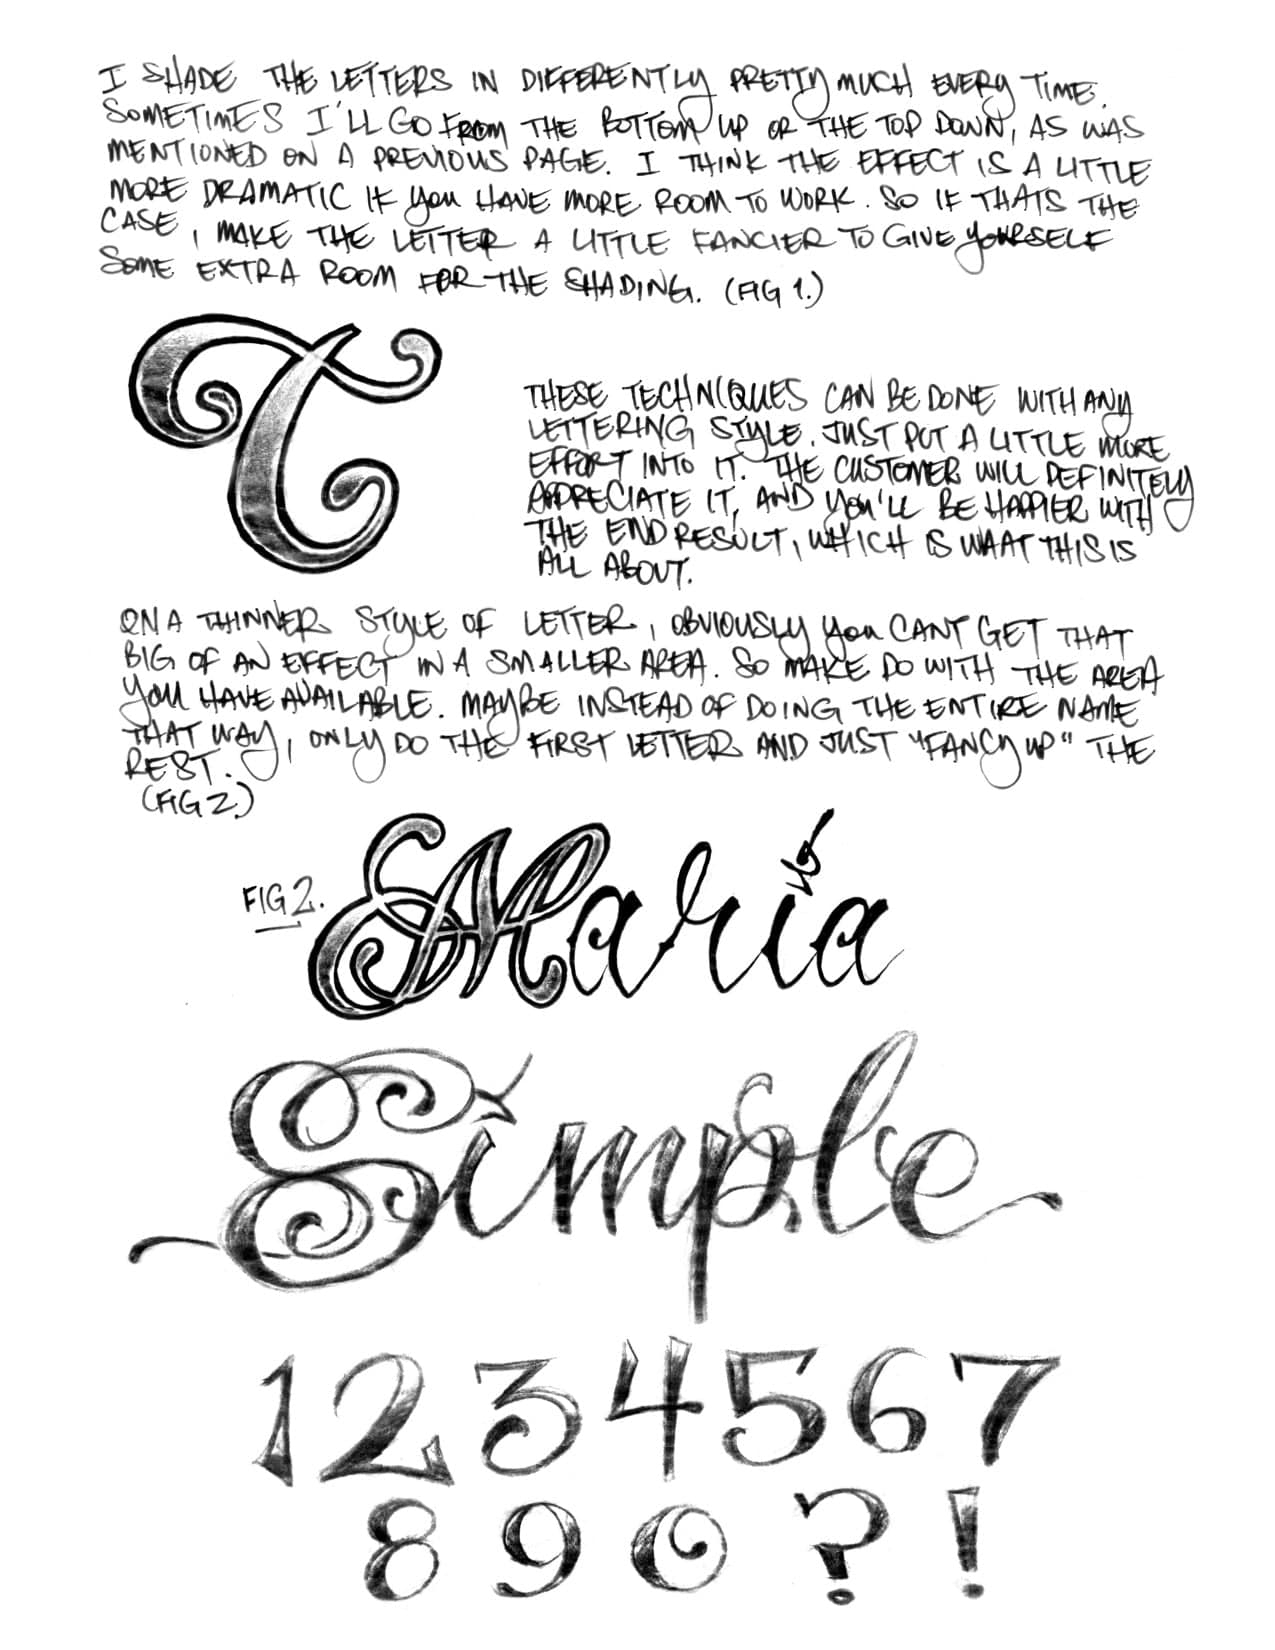 I SHADE THE LETTERS IN DIFFERENTLY PRETTY MUCH EVERY TIME.
SOMETIMES I'LL GO FROM THE BOTTOM UP OR THE TOP DOWN, AS WAS
MENTIONED ON A PREVIOUS PAGE. I THINK THE EFFECT IS A LITTLE
MORE DRAMATIC IF YOU HAVE MORE ROOM TO WORK. SO IF THATS THE
CASE, MAKE THE LETTER A LITTLE FANCIER TO GIVE YOURSELF
SOME EXTRA ROOM FOR THE SHADING. (FIG 1.)
T
THESE TECHNIQUES CAN BE DONE WITH ANY
LETTERING STYLE. JUST PUT A LITTLE MORE
EFFORT INTO IT. THE CUSTOMER WILL DEFINITELY
APPRECIATE IT, AND YOU'LL BE HAPPIER WITH
THE END RESULT, WHICH IS WHAT THIS IS
ALL ABOUT.
ON A THINNER STYLE OF LETTER, OBVIOUSLY YOU CANT GET THAT
BIG OF AN EFFECT IN A SMALLER AREA. SO MAKE DO WITH THE AREA
YOU HAVE AVAILABLE. MAYBE INSTEAD OF DOING THE ENTIRE NAME
THAT WAY, ONLY DO THE FIRST LETTER AND JUST "FANCY UP" THE
REST.
(FIG 2.)
FIG 2.
Maria
Simple
1234567
890?!